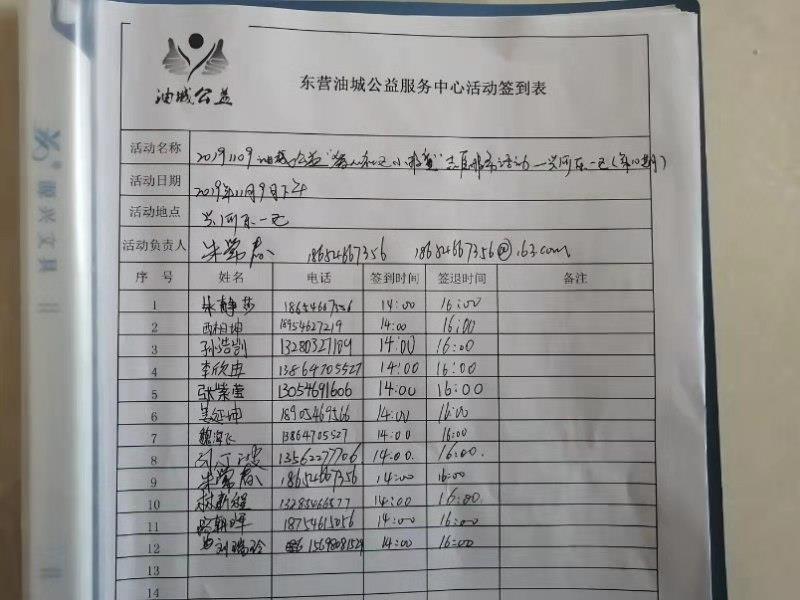 油城公益
东营油城公益服务中心活动签到表
活动名称 20191109油城公益 志愿服务活动—兴河东一区
活动日期 2019年11月9日下午
活动地点 兴河东一区
活动负责人 朱常春 18654667356 18654667356@163.com
序 号 姓名 电话 签到时间 签退时间 备注
1 14:00 16:00
2 西柏坤 18954627219 14:00 16:00
3 孙浩凯 13280327189 14:00 16:00
4 李欣冉 13864705527 14:00 16:00
5 张紫莹 13054691606 14:00 16:00
6 姜延坤 18905469566 14:00 16:00
7 魏海飞 13864705527 14:00 16:00
8 13562277706 14:00 16:00
9 朱常春 18654667356 14:00 16:00
10 14:00 16:00
11 18754615056 14:00 16:00
12 刘瑞玲 14:00 16:00
13
14
振兴文具